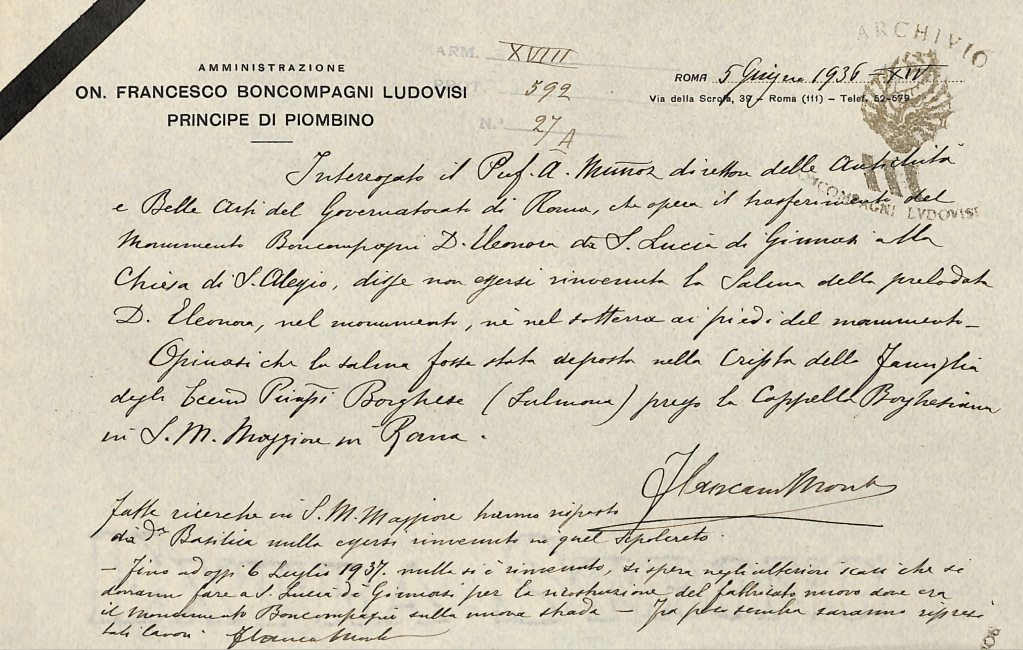 ARCHIVIO
BONCOMPAGNI LVDOVISI
ARM. XVIII
592
N. 27 A
AMMINISTRAZIONE
ON. FRANCESCO BONCOMPAGNI LUDOVISI
PRINCIPE DI PIOMBINO
ROMA 5 Giugno 1936 - XIV
Via della Scrofa, 39 – Roma (111) – Telef. 52-579
Interrogato il Prof. A. Muñoz direttore delle Antichità
e Belle Arti del Governatorato di Roma, che opera il trasferimento del
Monumento Boncompagni D. Eleonora da S. Lucia di Ginnasi alla
Chiesa di S. Alessio, disse non essersi rinvenuta la Salma della prelodata
D. Eleonora, nel monumento, nè nel sotterra ai piedi del monumento –
Opinasi che la salma fosse stata deposta nella Cripta della Famiglia
degli Eccmi Principi Borghese (Sulmona) presso la Cappella Borghesiana
in S. M. Maggiore in Roma.
fatte ricerche in S. M. Maggiore hanno risposto
da da Basilica nulla essersi rinvenuto in quel sepolcreto.
– Fino ad oggi 6 Luglio 1937. nulla si è rinvenuto, si spera negli ulteriori scavi che si
dovranno fare a S. Lucia de Ginnasi per la ricostruzione del fabbricato nuovo dove era
il Monumento Boncompagni sulla nuova strada – fra poco sembra saranno ripresi
tali lavori.